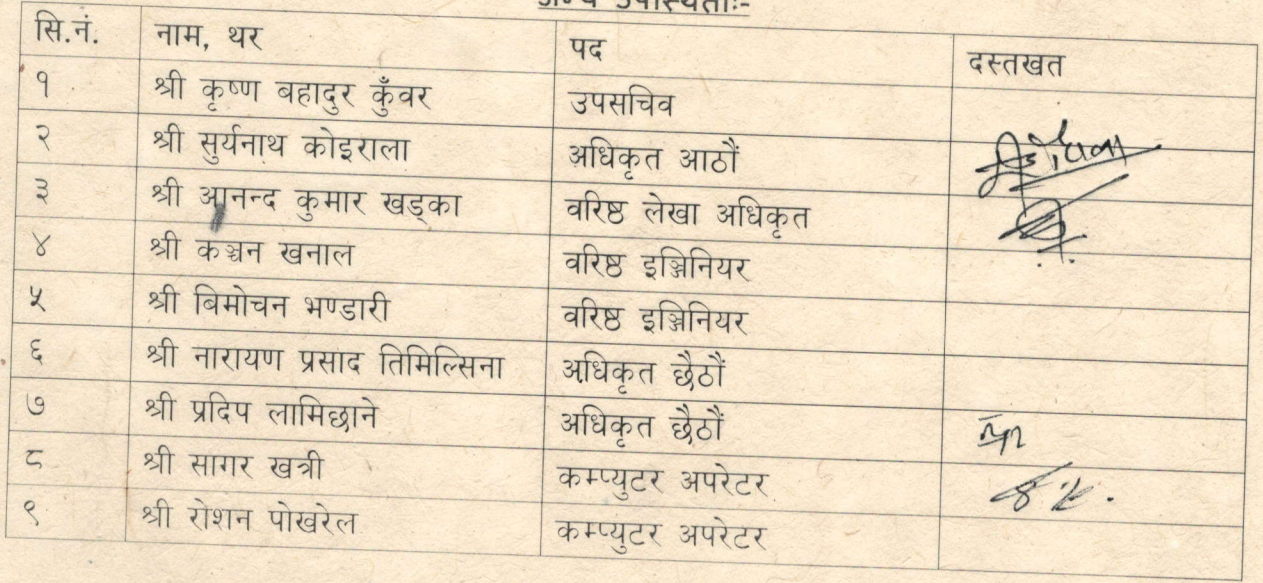 अन्य उपस्थिती:-
सि.नं. नाम, थर पद दस्तखत
१ श्री कृष्ण बहादुर कुँवर उपसचिव
२ श्री सुर्यनाथ कोइराला अधिकृत आठौं
३ श्री आनन्द कुमार खड्का वरिष्ठ लेखा अधिकृत
४ श्री कञ्चन खनाल वरिष्ठ इञ्जिनियर
५ श्री बिमोचन भण्डारी वरिष्ठ इञ्जिनियर
६ श्री नारायण प्रसाद तिमिल्सिना अधिकृत छैठौं
७ श्री प्रदिप लामिछाने अधिकृत छैठौं
८ श्री सागर खत्री कम्प्युटर अपरेटर
९ श्री रोशन पोखरेल कम्प्युटर अपरेटर